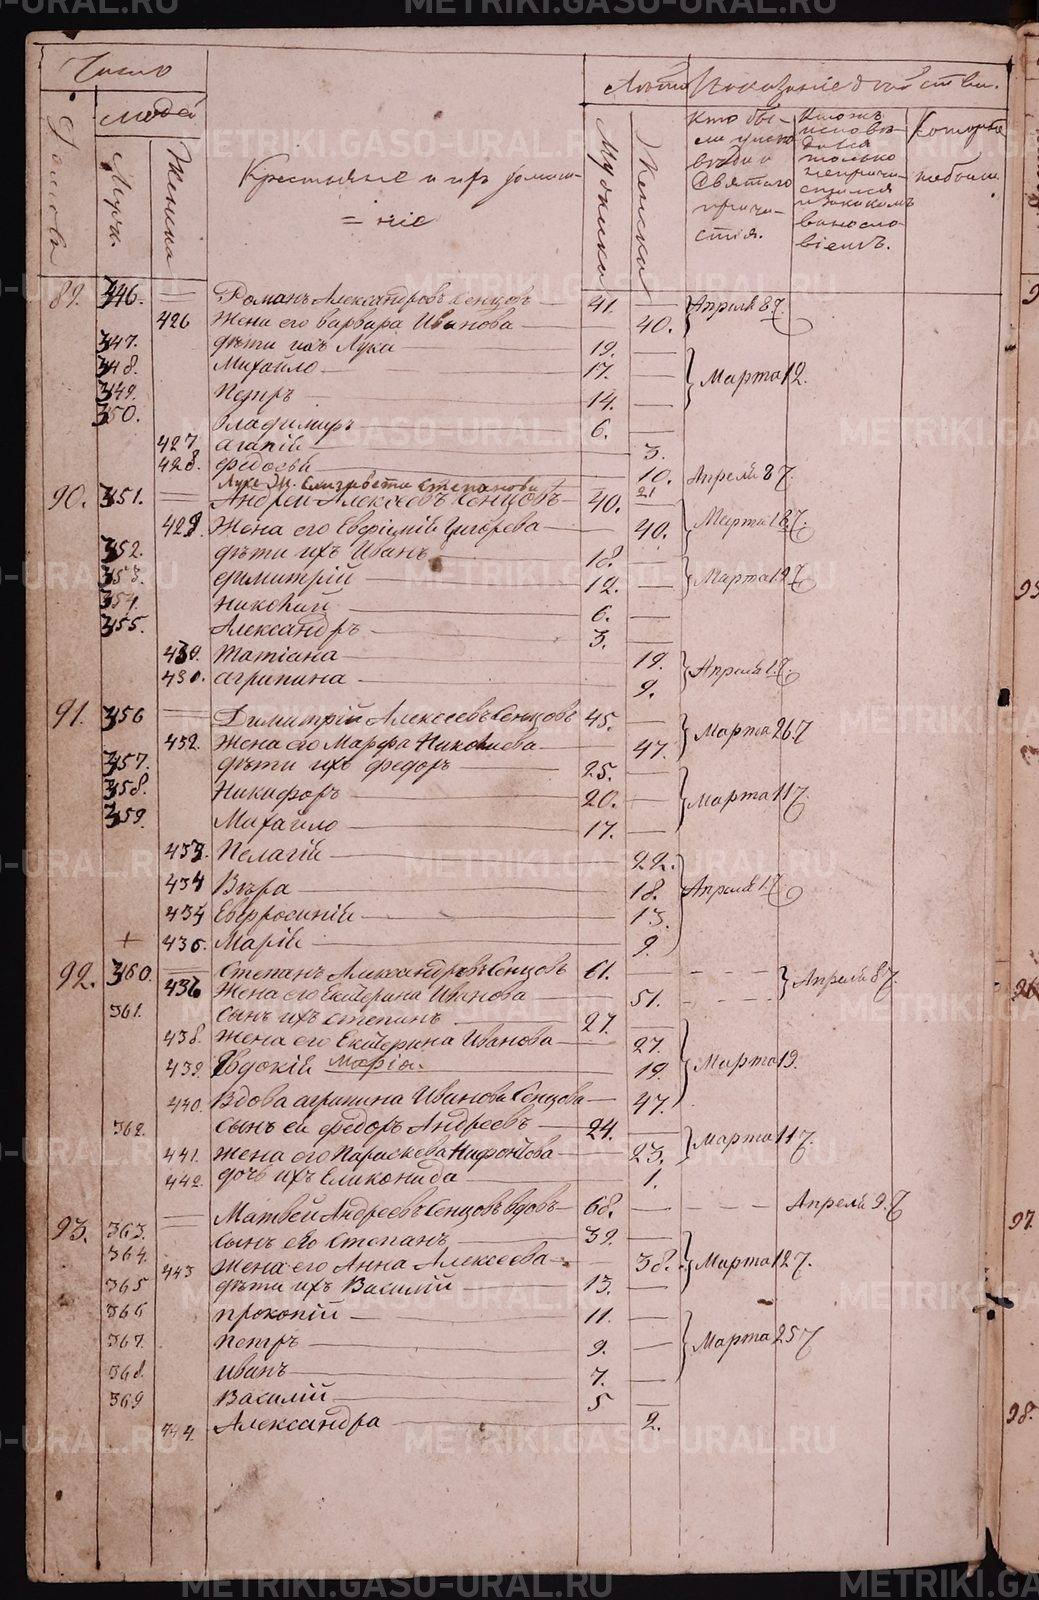 Число
людей
Дворовъ
Мужч.
Женщинъ
Крестьяне и ихъ домаш=
=ніе
Лѣта
Мужска
Женска
Показаніе дѣйства.
Кто бы-
ли у испо-
вѣди и
Святаго
прича-
стія.
Кто жъ
исповѣ-
дался
только
не прича-
стился
и за какимъ
виносло-
віемъ.
Которые
небыли
89. 346. — Романъ Александровъ Сенцовъ — 41. — Апреля 8 7.
426 Жена его Варвара Иванова — 40.
347. дѣти ихъ Лука — 19. —
348. Михайло — 17. — Марта 12.
349. Петръ — 14. —
350. Владимиръ — 6. —
427 агапій — 3.
428. федосья — 10. Апреля 8 7.
Луке Ж. Елизавета Степанова 21
90. 351. — Андрей Алексеевъ Сенцовъ — 40. —
429. Жена его Евфімій Григорева — 40. Марта 18 7.
352. дѣти ихъ Иванъ — 18. —
353. димитрій — 12. — Марта 19 7
354. николай — 6. —
355. Александръ — 3. —
430. татіана — 19.
430. агрипина — 9. Апреля 1 7.
91. 356 — Димитрій Алексеевъ Сенцовъ 45. —
432. Жена его Марфа Николаева — 47. Марта 26 7
357. дѣти ихъ федоръ — 25. —
358. Никифоръ — 20. — Марта 11 7.
359. Михайло — 17. —
433. Пелагій — 22.
434 Вѣра — 18. Апреля 1 7
434 Евфросиній — 13.
+ 436. Марій — 9.
92. 360. — Степанъ Александровъ Сенцовъ 61. — Апреля 8 7
436 Жена его Екатерина Иванова — 51.
361. сынъ ихъ степанъ — 27. —
438. Жена его Екатерина Иванова — 27.
439. Евдокій Марія. — 19. Марта 19.
440. Вдова агрипина Иванова Сенцова — 47.
362. сынъ ея федоръ Андреевъ — 24. —
441. Жена его Параскева Нифонтова — 23. Марта 11 7.
442. дочь ихъ Еликонида — 1.
93. 363. — Матвей Андреевъ Сенцовъ вдовъ — 68. — Апреля 9. 7
364. сынъ его степанъ — 39. —
443 Жена его Анна Алексеева — 38. Марта 12 7.
365 дѣти ихъ Василій — 13. —
366 прокопій — 11. —
367. петръ — 9. — Марта 25 7
368. иванъ — 7. —
369 Василій — 5 —
444. Александра — 2.